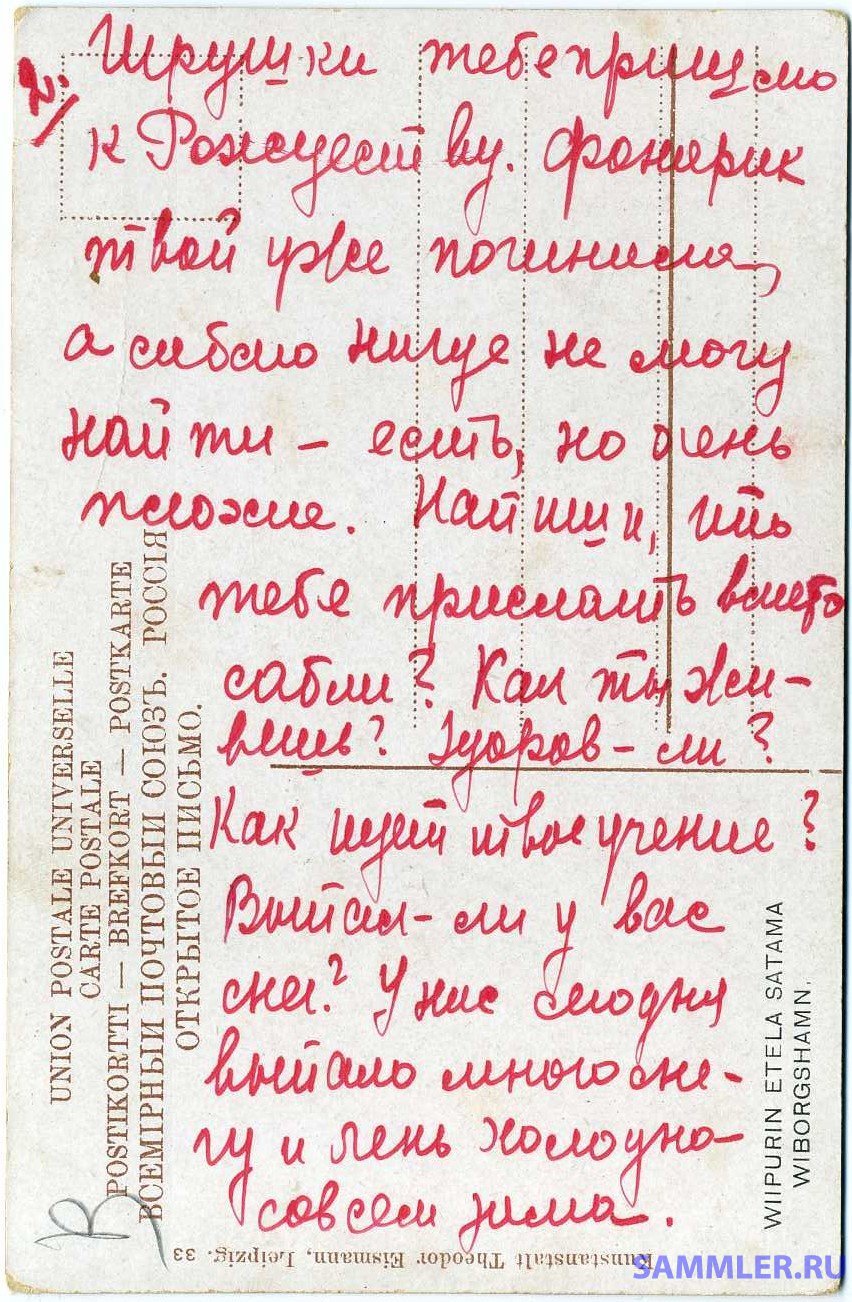 2.
Игрушки тебе пришлю
к Рождеству. Фонарик
твой уже починила,
а саблю нигде не могу
найти – есть, но очень
плохие. Напиши, что
тебе прислать вместо
сабли? Как ты жи-
вешь? Здоров-ли?
Как идет твое учение?
Выпал-ли у вас
снег? У нас сегодня
выпало много сне-
гу и очень холодно –
совсем зима.
UNION POSTALE UNIVERSELLE
CARTE POSTALE
POSTIKORTTI — BREFKORT — POSTKARTE
ВСЕМІРНЫЙ ПОЧТОВЫЙ СОЮЗЪ. РОССІЯ
ОТКРЫТОЕ ПИСЬМО.
WIIPURIN ETELA SATAMA
WIBORGSHAMN.
Kunstanstalt Theodor Eismann, Leipzig. 33
SAMMLER.RU